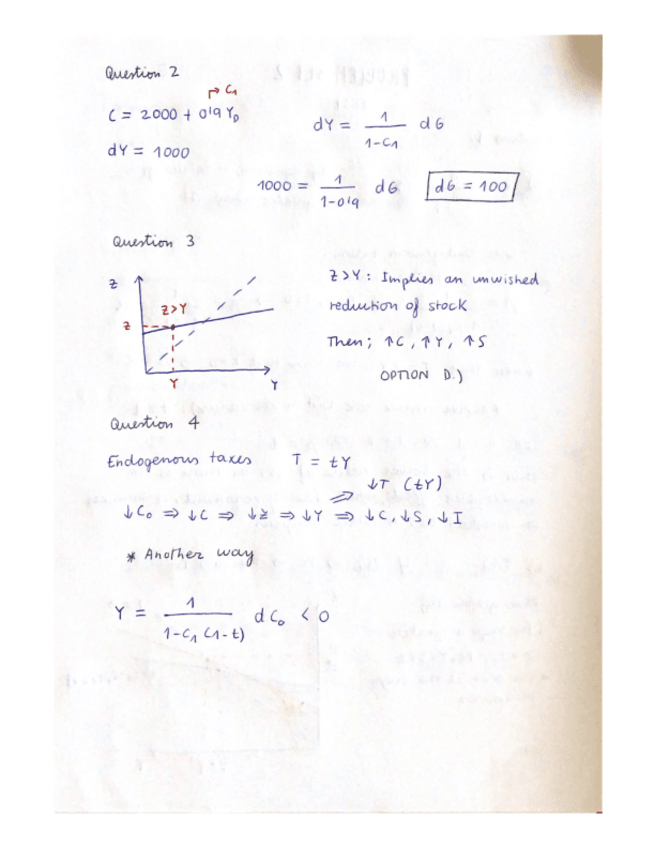 Question 2
C₁
C = 2000 + 0'9 Y_D
dY = 1/(1-C₁) dG
dY = 1000
1000 = 1/(1-0'9) dG
dG = 100
Question 3
Z
Z>Y
Z
Y
Y
Z>Y: Implies an unwished
reduction of stock
Then; ↑C, ↑Y, ↑S
OPTION D.)
Question 4
Endogenous taxes T = tY
↓T (tY)
↓C₀ ⇒ ↓C ⇒ ↓Z ⇒ ↓Y ⇒ ↓C, ↓S, ↓I
* Another way
Y = 1/(1-C₁(1-t)) dC₀ < 0